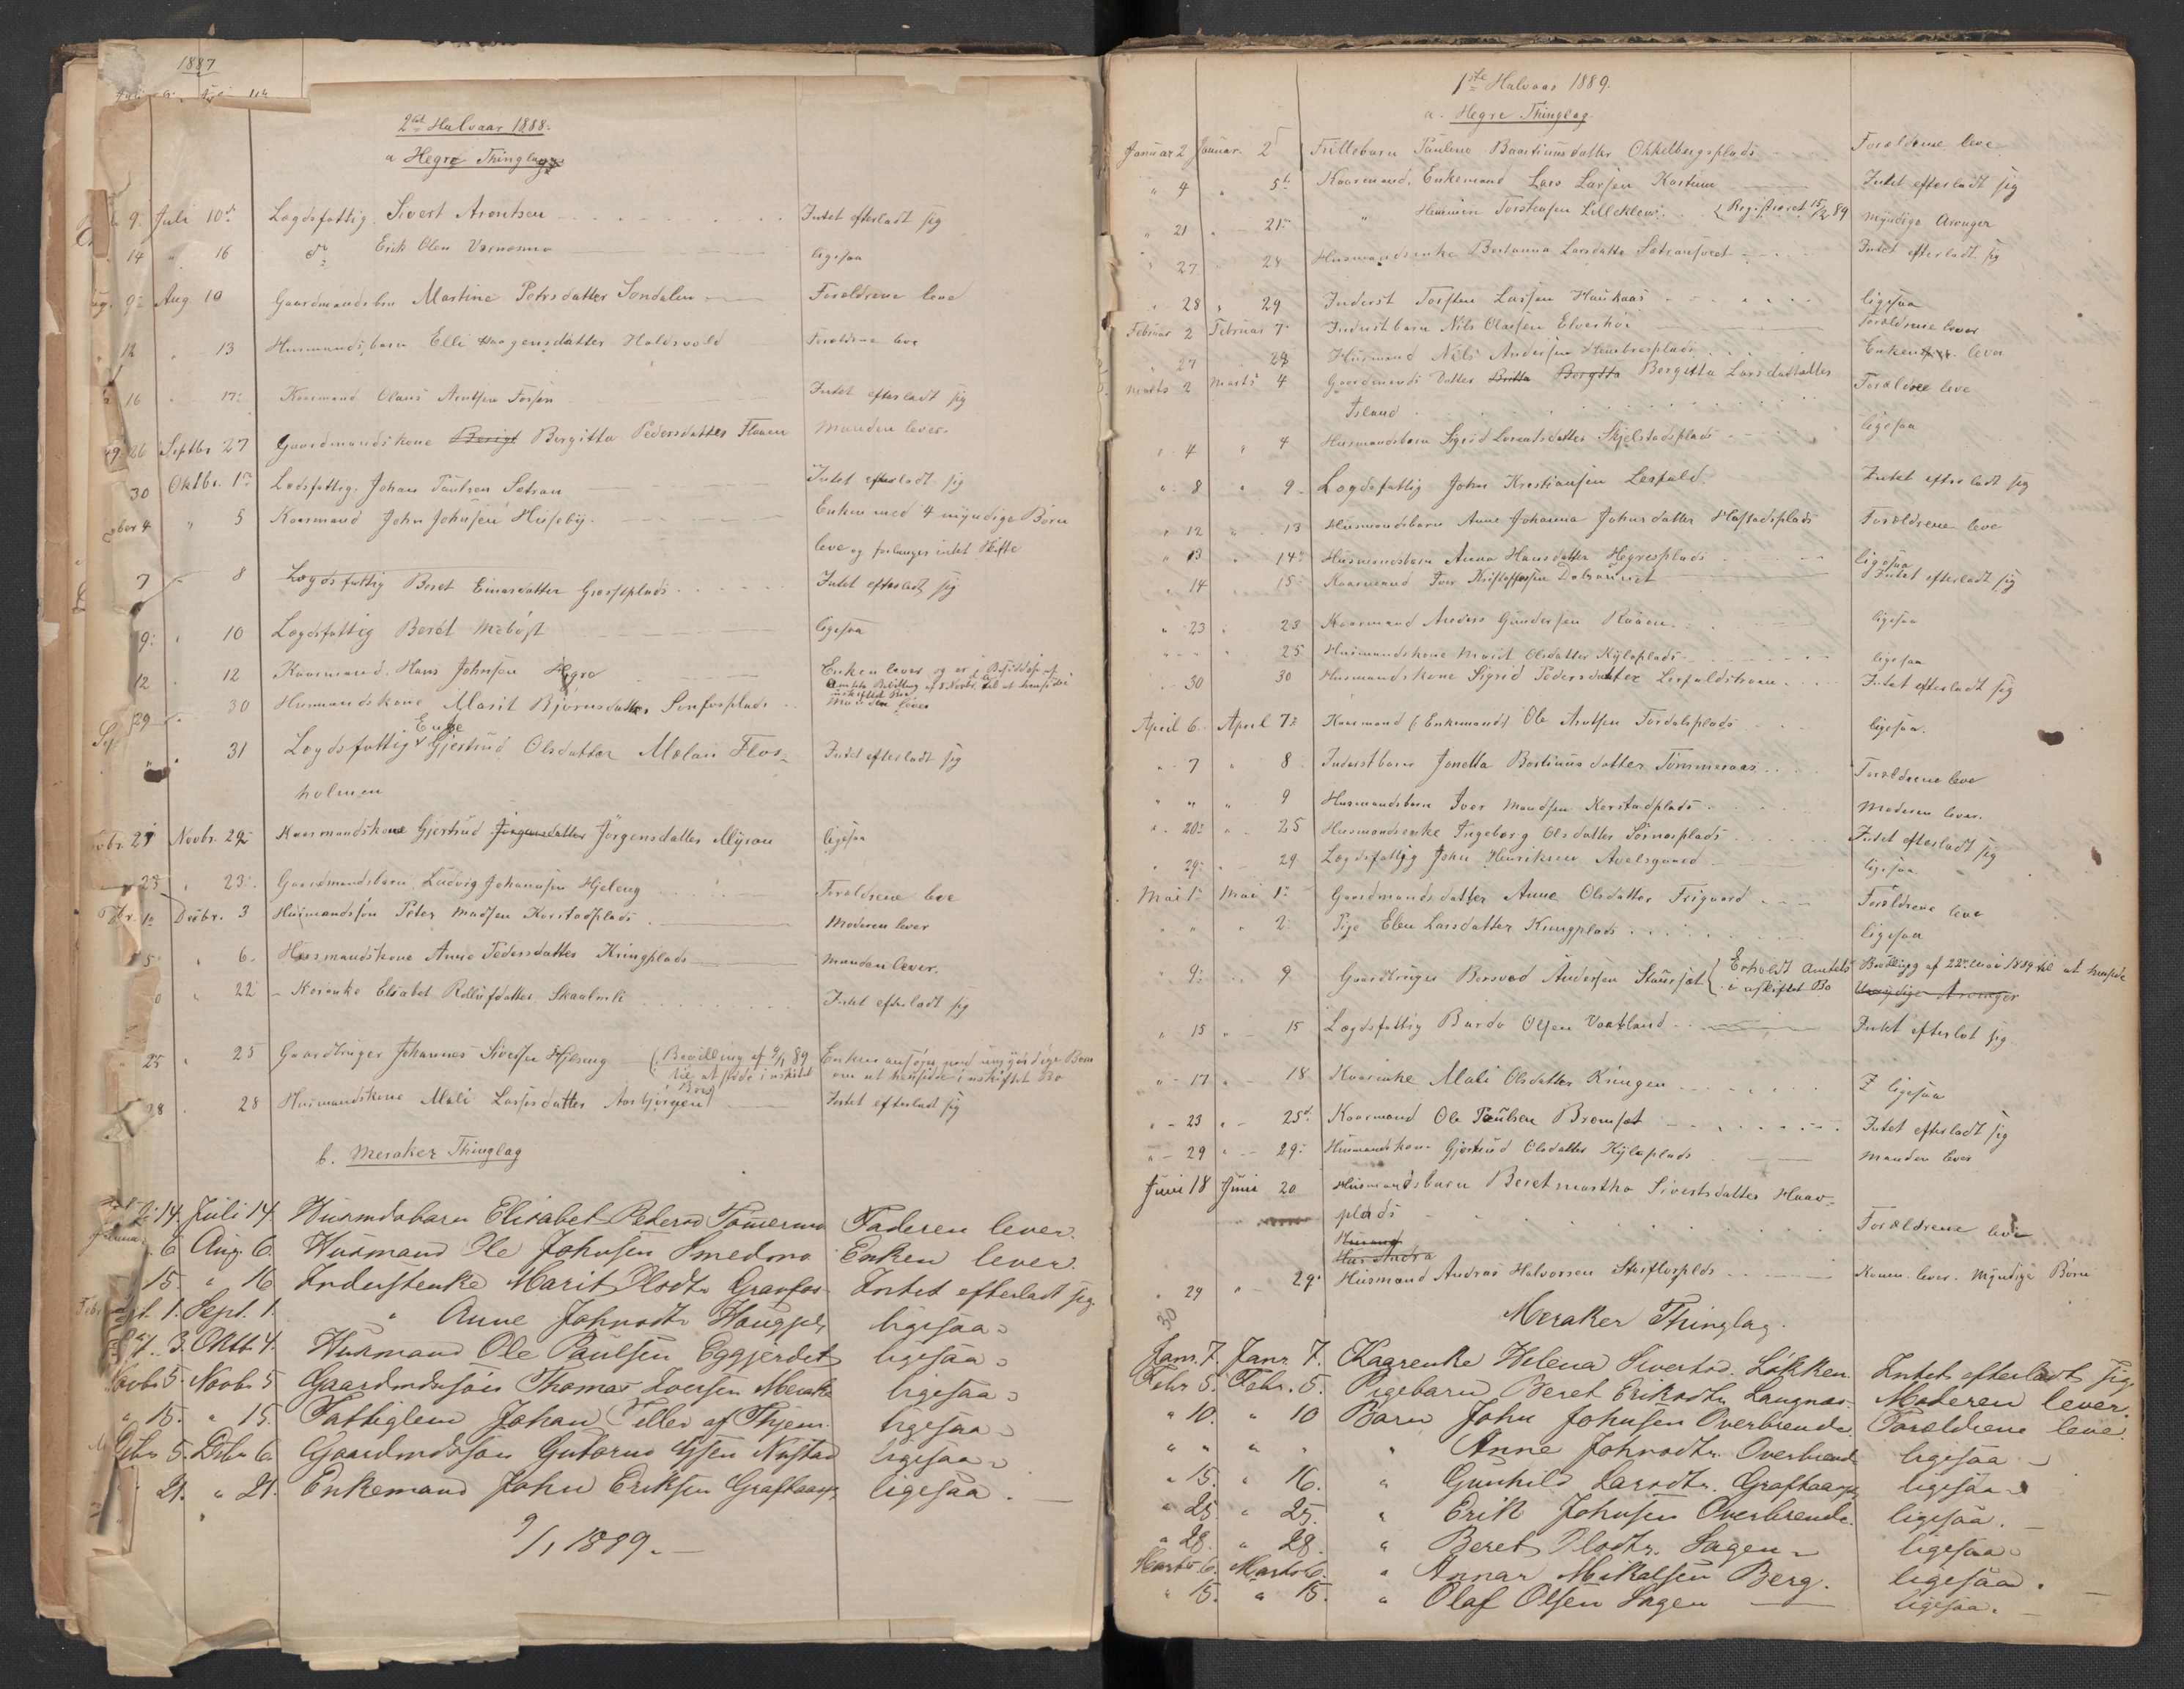 1887
2det Halvaar 1888.
a Hegre Thinglag
9. Juli 10de Lægdsfattig. Sivert Arentsen Intet efterladt sig
14 " 16 do Erik Olsen Værnesmo ligesaa
Aug. 9 Aug. 10 Gaardmandsbrn Martine Petersdatter Sondalen Forældrene leve
12 " 13 Husmandsbarn Elli Haagensdatter Holdsvold Forældrene leve
16 " 17 Kaarmand Olaus Arntsen Fossen Intet efterladt sig
26 Septbr 27 Gaardmandskone Berigt Bergitta Pedersdatter Flaaen Manden lever.
30 Oktbr. 1ste Lægdsfattig. Johan Paulsen Sætran Intet efterladt sig
4 " 5 Kaarmand John Johnsen Huseby. Enken med 4 myndige Børn
leve og forlanges intet Skifte
7 8 Lægdsfattig Beret Einarsdatter Græsliplads Intet efterladt sig
9 " 10 Lægdsfattig Berét Mæbøst ligesaa
12 12 Kaarmand. Hans Johnsen Hegre Enken lever og er i Besiddelse af
Amtets Bevilling af 8 Novbr. til at hensidde i
uskiftet Bo
29 30 Husmandskone Marit Bjørnsdatter Sonfosplads Manden lever
Enke
" " 31 Lægdsfattig Gjertrud Olsdatter Mælan Flos-
holmen Intet efterladt sig
21 Novbr. 22 Kaarmandskone Gjertrud Jørgensdatter Jörgensdatter Myran ligesaa
23 " 23 Gaardmandsbarn. Ludvig Johannsen Hjelseng Forældrene leve
1 Decbr. 3 Husmandssøn Peter Madsen Korstadplads Moderen lever
5 " 6. Husmandskone Anne Pedersdatter Kringplads Manden lever.
22 Korenke Elisabet Rollufsdatter Skaalmli Intet efterladt sig
25 " 25 Gaardbruger Johannes Sivertsen Hjelseng (Bevilling af 9/1 89 Enken ansøger med umyndige Børn
til at sidde i uskiftet Bo) om at hensidde i uskiftet Bo
28 28 Husmandskone Mali Larsesdatter Aasbjörgen Intet efterladt sig
b. Meraker Thinglag
14. Juli 14. Husmdsbarn Elisabet Pedersd Tømermo Faderen lever.
6 Aug. 6. Husmand Ole Johnsen Smedmo Enken lever.
15. " 16 Inderstenke Marit Olsdtr Granfos Intet efterladt sig.
Sept. 1. Sept. 1. " Anne Johnsdtr Haugpl. ligesaa
3. Oktb. 4. Husmand Ole Paulsen Eggjerdet ligesaa
Novbr 5. Novbr 5 Gaardmdssøn Thomas Iversen Merake ligesaa
" 15. " 15. Fattiglem Johan Teller af Thjem. ligesaa
Dcbr 5. Dcbr 6. Gaardmdssøn Gutorm Ysen Nustad ligesaa
21. " 21. Enkemand John Eriksen Grafhaap ligesaa.
9/1 1889.
1ste Halvaar 1889.
a. Hegre Thinglag
Januar 2 Januar. 2 Frillebarn Pauline Baartinusdatter Okkelbergsplads Forældrene leve
" 4 " 5te Kaarmand. Enkemand Lars Larsen Kastum Intet efterladt sig
" 21 21 " Henmin Torstensen Lilleklev. (Registreret 15/2 89 Myndige Arvinger
" 27 28 Husmandsenke Bertanna Larsdatter Sætransvedt Intet efterladt sig
" 28 " 29 Inderst Torsten Larsen Haukaas ligesaa
Februar 2 Februar 7 Inderstbarn Nils Olausen Elverhøi Forældrene lever
" 27 28 Husmand Nils Andersen Hembresplads Enken lever
Marts 2 Marts 4 Gaardmands Datter Britta Bergtta Bergitta Larsdattatter
Ísland Forældree leve
" 4 " 4 Husmandsbarn Sigrid Lorentsdatter Skjelstadsplads ligesaa
" 8 " 9. Lægdsfattig John Kristiansen Lerfald Intet efterladt sig
" 12 " 13 Husmandsbarn Anne Johanna Johnsdatter Hofstadsplads Forældrene leve
" 13 " 14 Husmandsbarn Anna Hansdatter Hegresplads ligesaa
" 14 15 Kaarmand Iver Kristoffersen Dalsaunet Intet efterladt sig
" 23 " 23 Kaarmand Anders Gundersen Raaen ligesaa
" " " 25 Husmandskone Marit Olsdatter Kyloplads ligesaa
" 30 30 Husmandskone Sigrid Pedersdatter Lerfaldstrøen Intet efterladt sig
April 6. April 7 Kaarmand (Enkemand) Ole Arntsen Fordalsplads ligesaa.
" 7 " 8. Inderstbarn Jonetta Bartinusdatter Tömmeraas Forældrene leve
" " " 9 Husmandsbarn Iver Mandsen Kerstadplads Moderen lever.
" 20 " 25 Husmandsenke Ingeborg Olsdatter Sörnesplads Intet efterladt sig
" 29 " 29 Lægdsfattig John Henriksen Avelsgaard ligesaa
Mai 1 Mai 1 Gaardmandsdatter Anne Olsdatter Frigaard Forældrene leve
" " " 2 Pige Elen Larsdatter Kringplads ligesaa
" 9 " 9 Gaardbruger Bersvend Andersen Staursæt (Erholdt Amtets Bevilling af 22de Mai 1889 til at hensidde
i uskiftet Bo Umyndige Arvinger
" 15 " 15 Lægdsfattig Bardo Olsen Vaatland Intet efterlat sig
" 17 " 18 Kaarenke Mali Olsdatter Kringen I ligesaa
" 23 " 25de Kaarmand Ole Paulsen Bremset Intet efterladt sig
" 29 " 29 Husmandskone Gjertrud Olsdatter Kyloplads Manden lever
Juni 18 Juni 20 Husmandsbarn Beretmartha Sivertsdatter Haav-
plads Forældrene leve
Husmand
Hus Andra
" 29 " 29 Husmand Andras Halvorsen Storflorplds Konen lever. Myndige Børn
30
Meraker Thinglag.
Janr. 7. Janr. 7. Kaarenke Helena Sivertsd. Løkken. Intet efterladt sig.
Febr. 5. Febr. 5. Pigebarn Beret Eriksdtr. Langnes. Moderen lever.
" 10. " 10 Barn John Johnsen Overbrende. Forældrene leve.
" " " " " Anne Johnsdtr. Overbrende ligesaa
" 15. " 16. " Gunhild Larsdtr. Grafhaap ligesaa
" 25 " 25. " Erik Johnsen Overbrende. ligesaa.
" 28. " 28. " Beret Olsdtr. Sagen ligesaa
Marts 6. Marts 6. " Annar Mikalsen Berg. ligesaa.
" 15. " 15. " Olaf Olsen Sagen ligesaa.